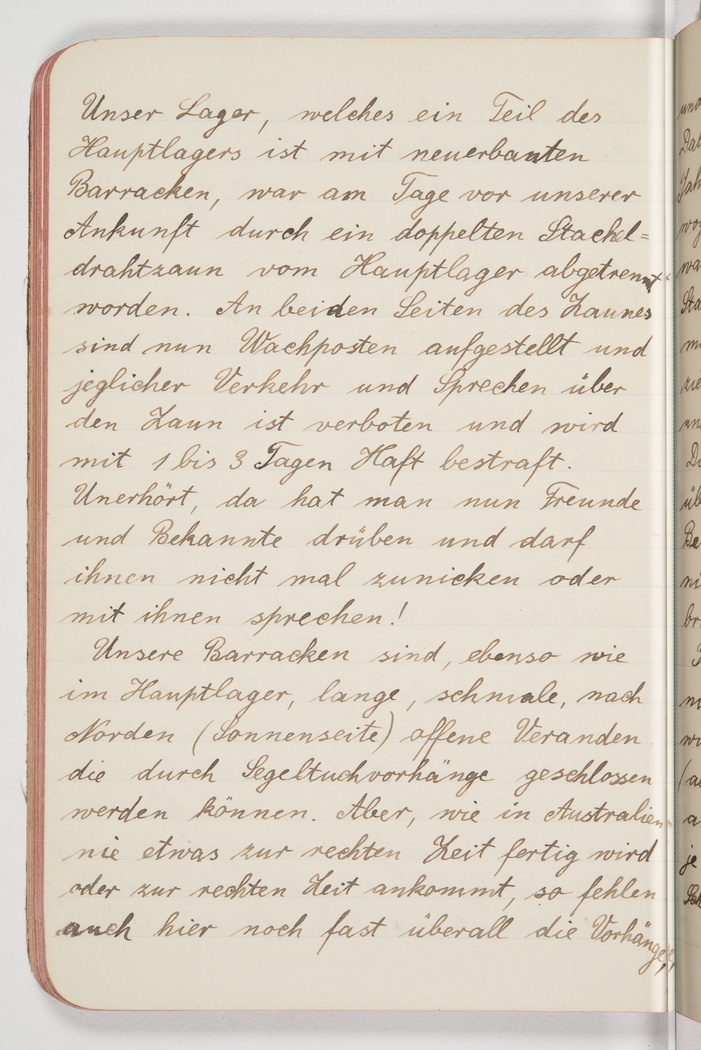 Unser Lager, welches ein Teil des
Hauptlagers ist mit neuerbauten
Barracken, war am Tage vor unserer
Ankunft durch ein doppelten Stachel=
drahtzaun vom Hauptlager abgetrennt
worden. An beiden Seiten des Zaunes
sind nun Wachposten aufgestellt und
jeglicher Verkehr und Sprechen über
den Zaun ist verboten und wird
mit 1 bis 3 Tagen Haft bestraft.
Unerhört, da hat man nun Freunde
und Bekannte drüben und darf
ihnen nicht mal zunicken oder
mit ihnen sprechen!
Unsere Barracken sind, ebenso wie
im Hauptlager, lange, schmale, nach
Norden (Sonnenseite) offene Veranden
die durch Segeltuchvorhänge geschlossen
werden können. Aber, wie in Australien
nie etwas zur rechten Zeit fertig wird
oder zur rechten Zeit ankommt, so fehlen
auch hier noch fast überall die Vorhänge,